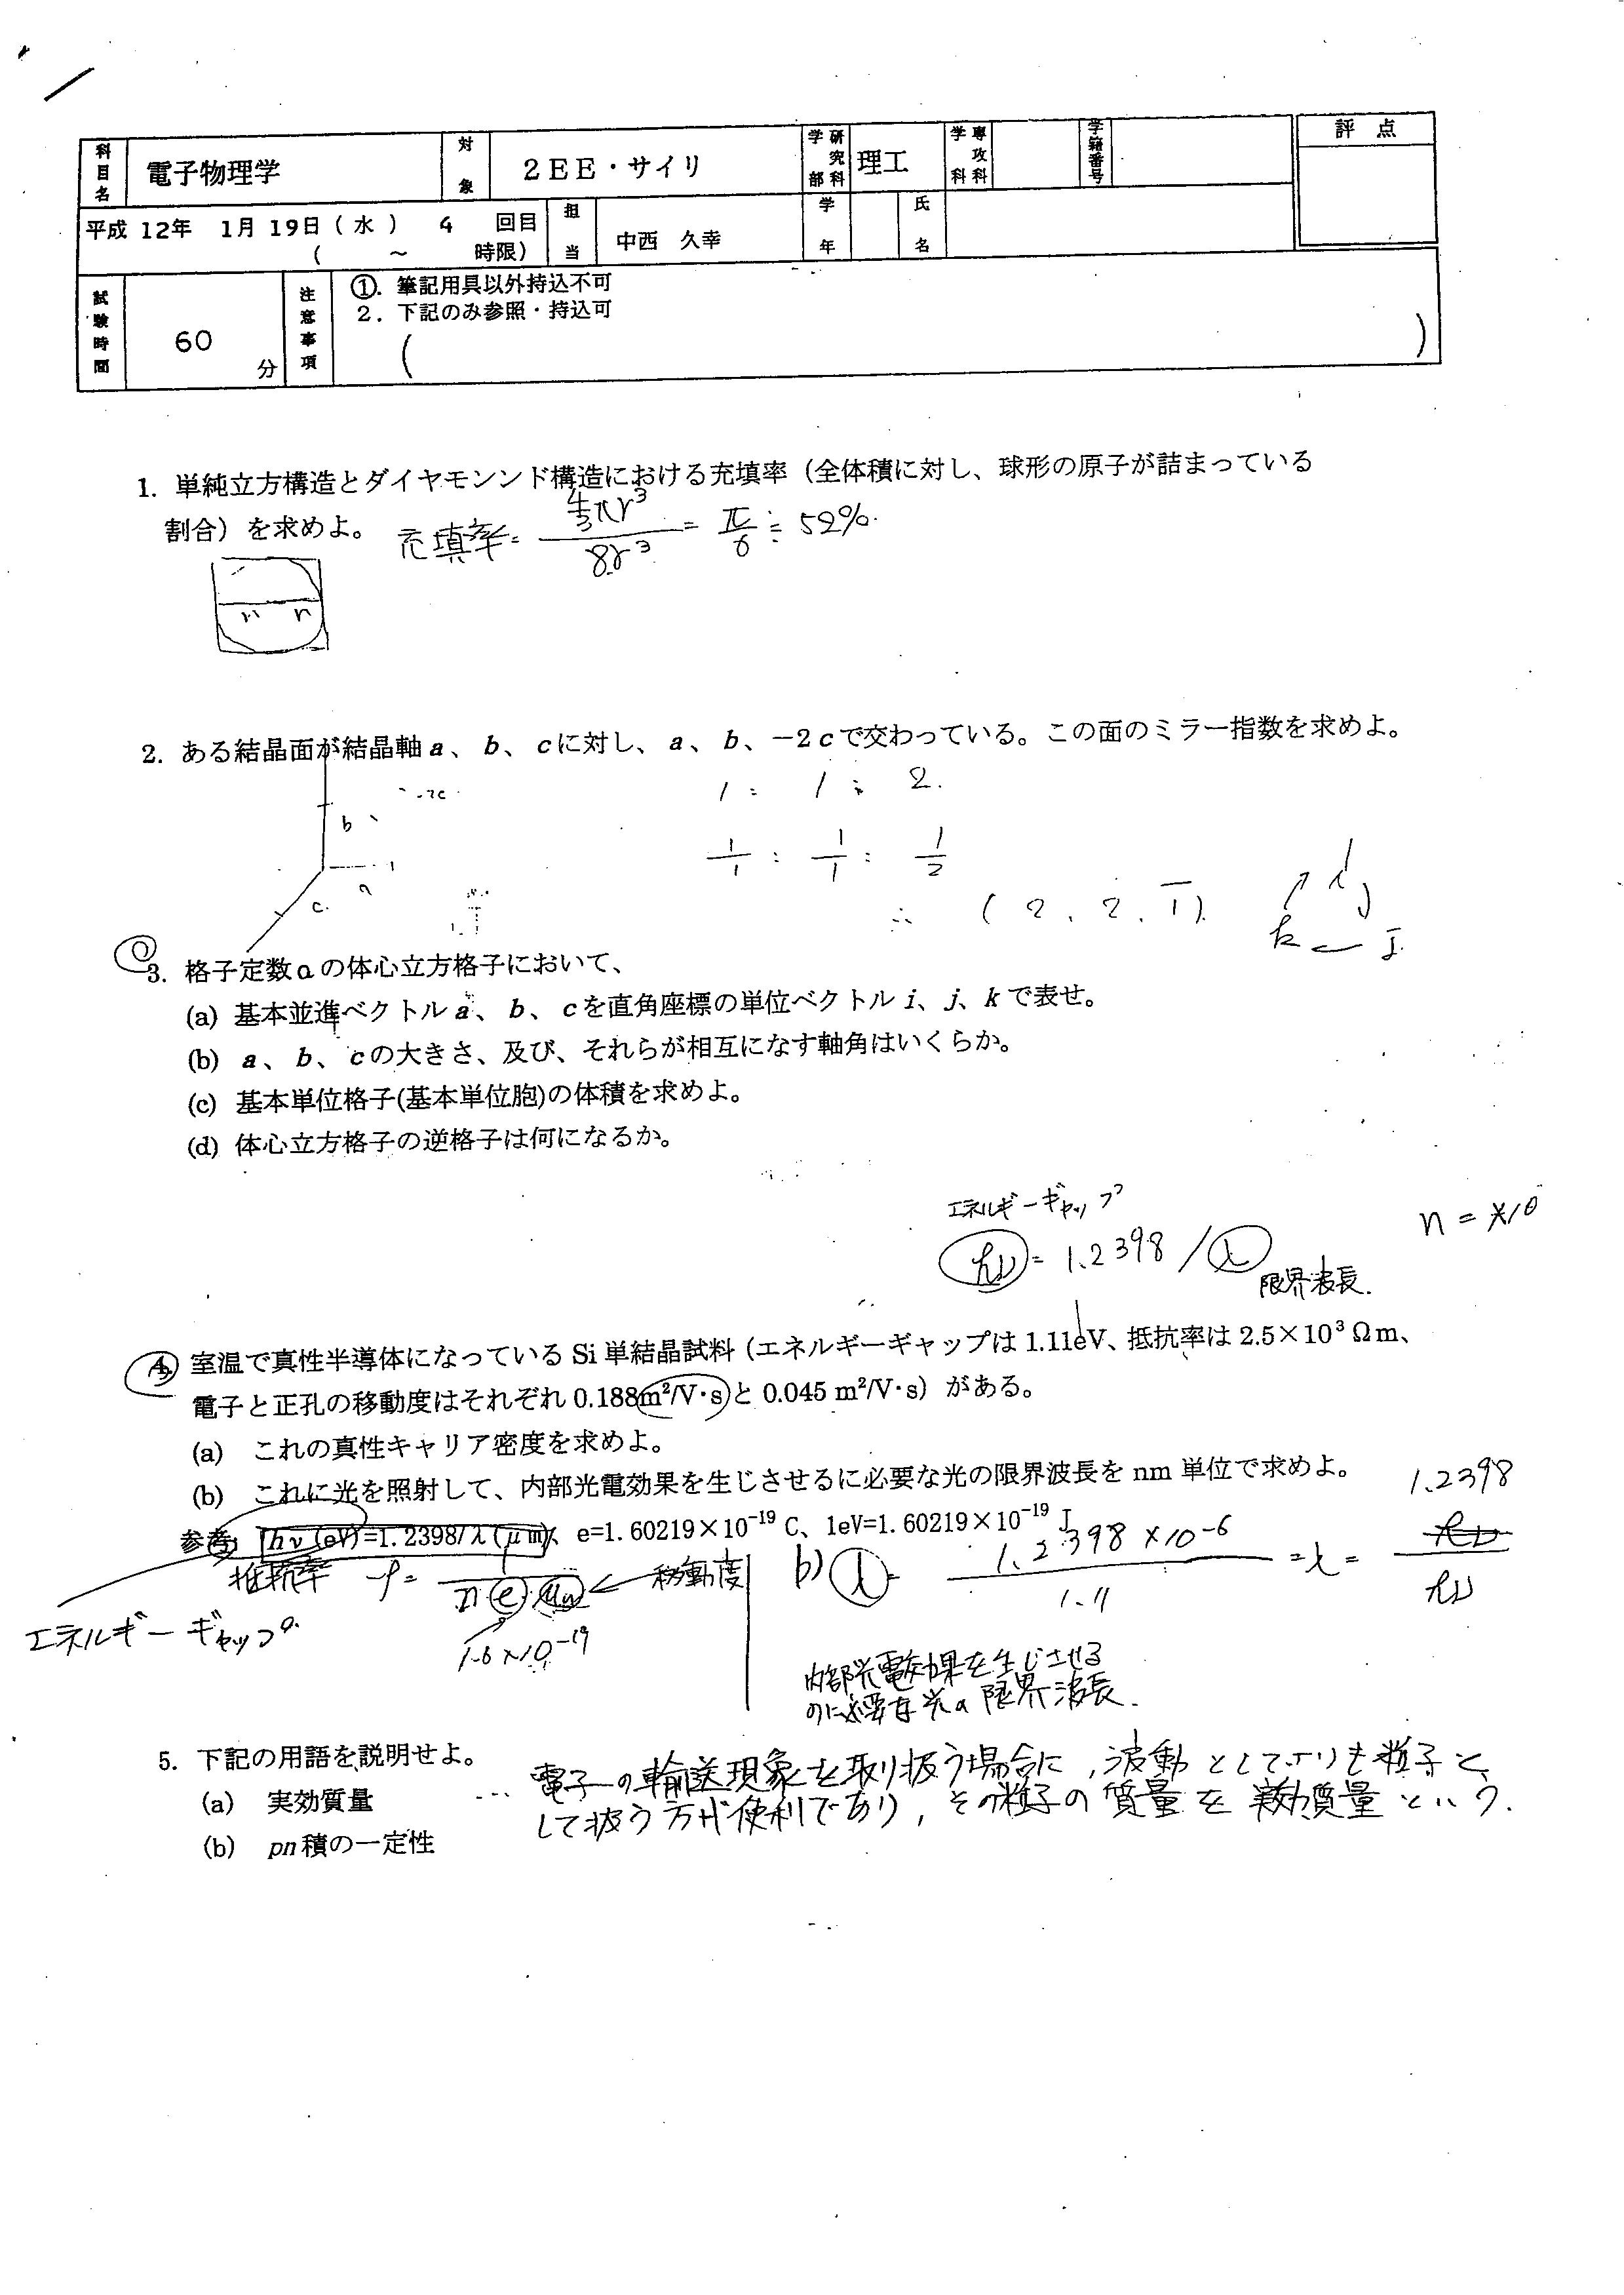 科目名 電子物理学 対象 2EE・サイリ 学部 研究科 理工 学科 専攻科 学籍番号 評点
平成 12年 1月 19日 ( 水 ) 4 回目
( ～ 時限) 担当 中西 久幸 学年 氏名
試験時間 60 分 注意事項 ①. 筆記用具以外持込不可
2. 下記のみ参照・持込可
( )
1. 単純立方構造とダイヤモンンド構造における充填率（全体積に対し、球形の原子が詰まっている
割合）を求めよ。 充填率= 4/3πr³ / 8r³ = π/6 ≒ 52%.
r r
2. ある結晶面が結晶軸 a、b、c に対し、a、b、−2c で交わっている。この面のミラー指数を求めよ。
-2c
1 : 1 : 2.
b
1/1 : 1/1 : 1/2
a
c.
∴ ( 2 , 2 , 1̅ ).
i
k j
3. 格子定数 a の体心立方格子において、
(a) 基本並進ベクトル a、b、c を直角座標の単位ベクトル i、j、k で表せ。
(b) a、b、c の大きさ、及び、それらが相互になす軸角はいくらか。
(c) 基本単位格子(基本単位胞)の体積を求めよ。
(d) 体心立方格子の逆格子は何になるか。
エネルギーギャップ
hν = 1.2398 / λ
限界波長.
4. 室温で真性半導体になっている Si 単結晶試料（エネルギーギャップは 1.11eV、抵抗率は 2.5×10³ Ωm、
電子と正孔の移動度はそれぞれ 0.188m²/V·s と 0.045 m²/V·s）がある。
(a) これの真性キャリア密度を求めよ。
(b) これに光を照射して、内部光電効果を生じさせるに必要な光の限界波長を nm 単位で求めよ。
参考) hν(eV)=1.2398/λ(μm)、e=1.60219×10⁻¹⁹ C、1eV=1.60219×10⁻¹⁹ J
抵抗率 ρ = 1 / n e μn ← 移動度
b) λ = 1.2398 × 10⁻⁶ / 1.11 = λ = 1.2398 / hν
エネルギーギャップ
1.6×10⁻¹⁹
内部光電効果を生じさせる
のに必要な光の限界波長.
5. 下記の用語を説明せよ。
(a) 実効質量 … 電子の輸送現象を取り扱う場合に,波動としてよりも粒子と
して扱う方が便利であり,その粒子の質量を実効質量という.
(b) pn 積の一定性